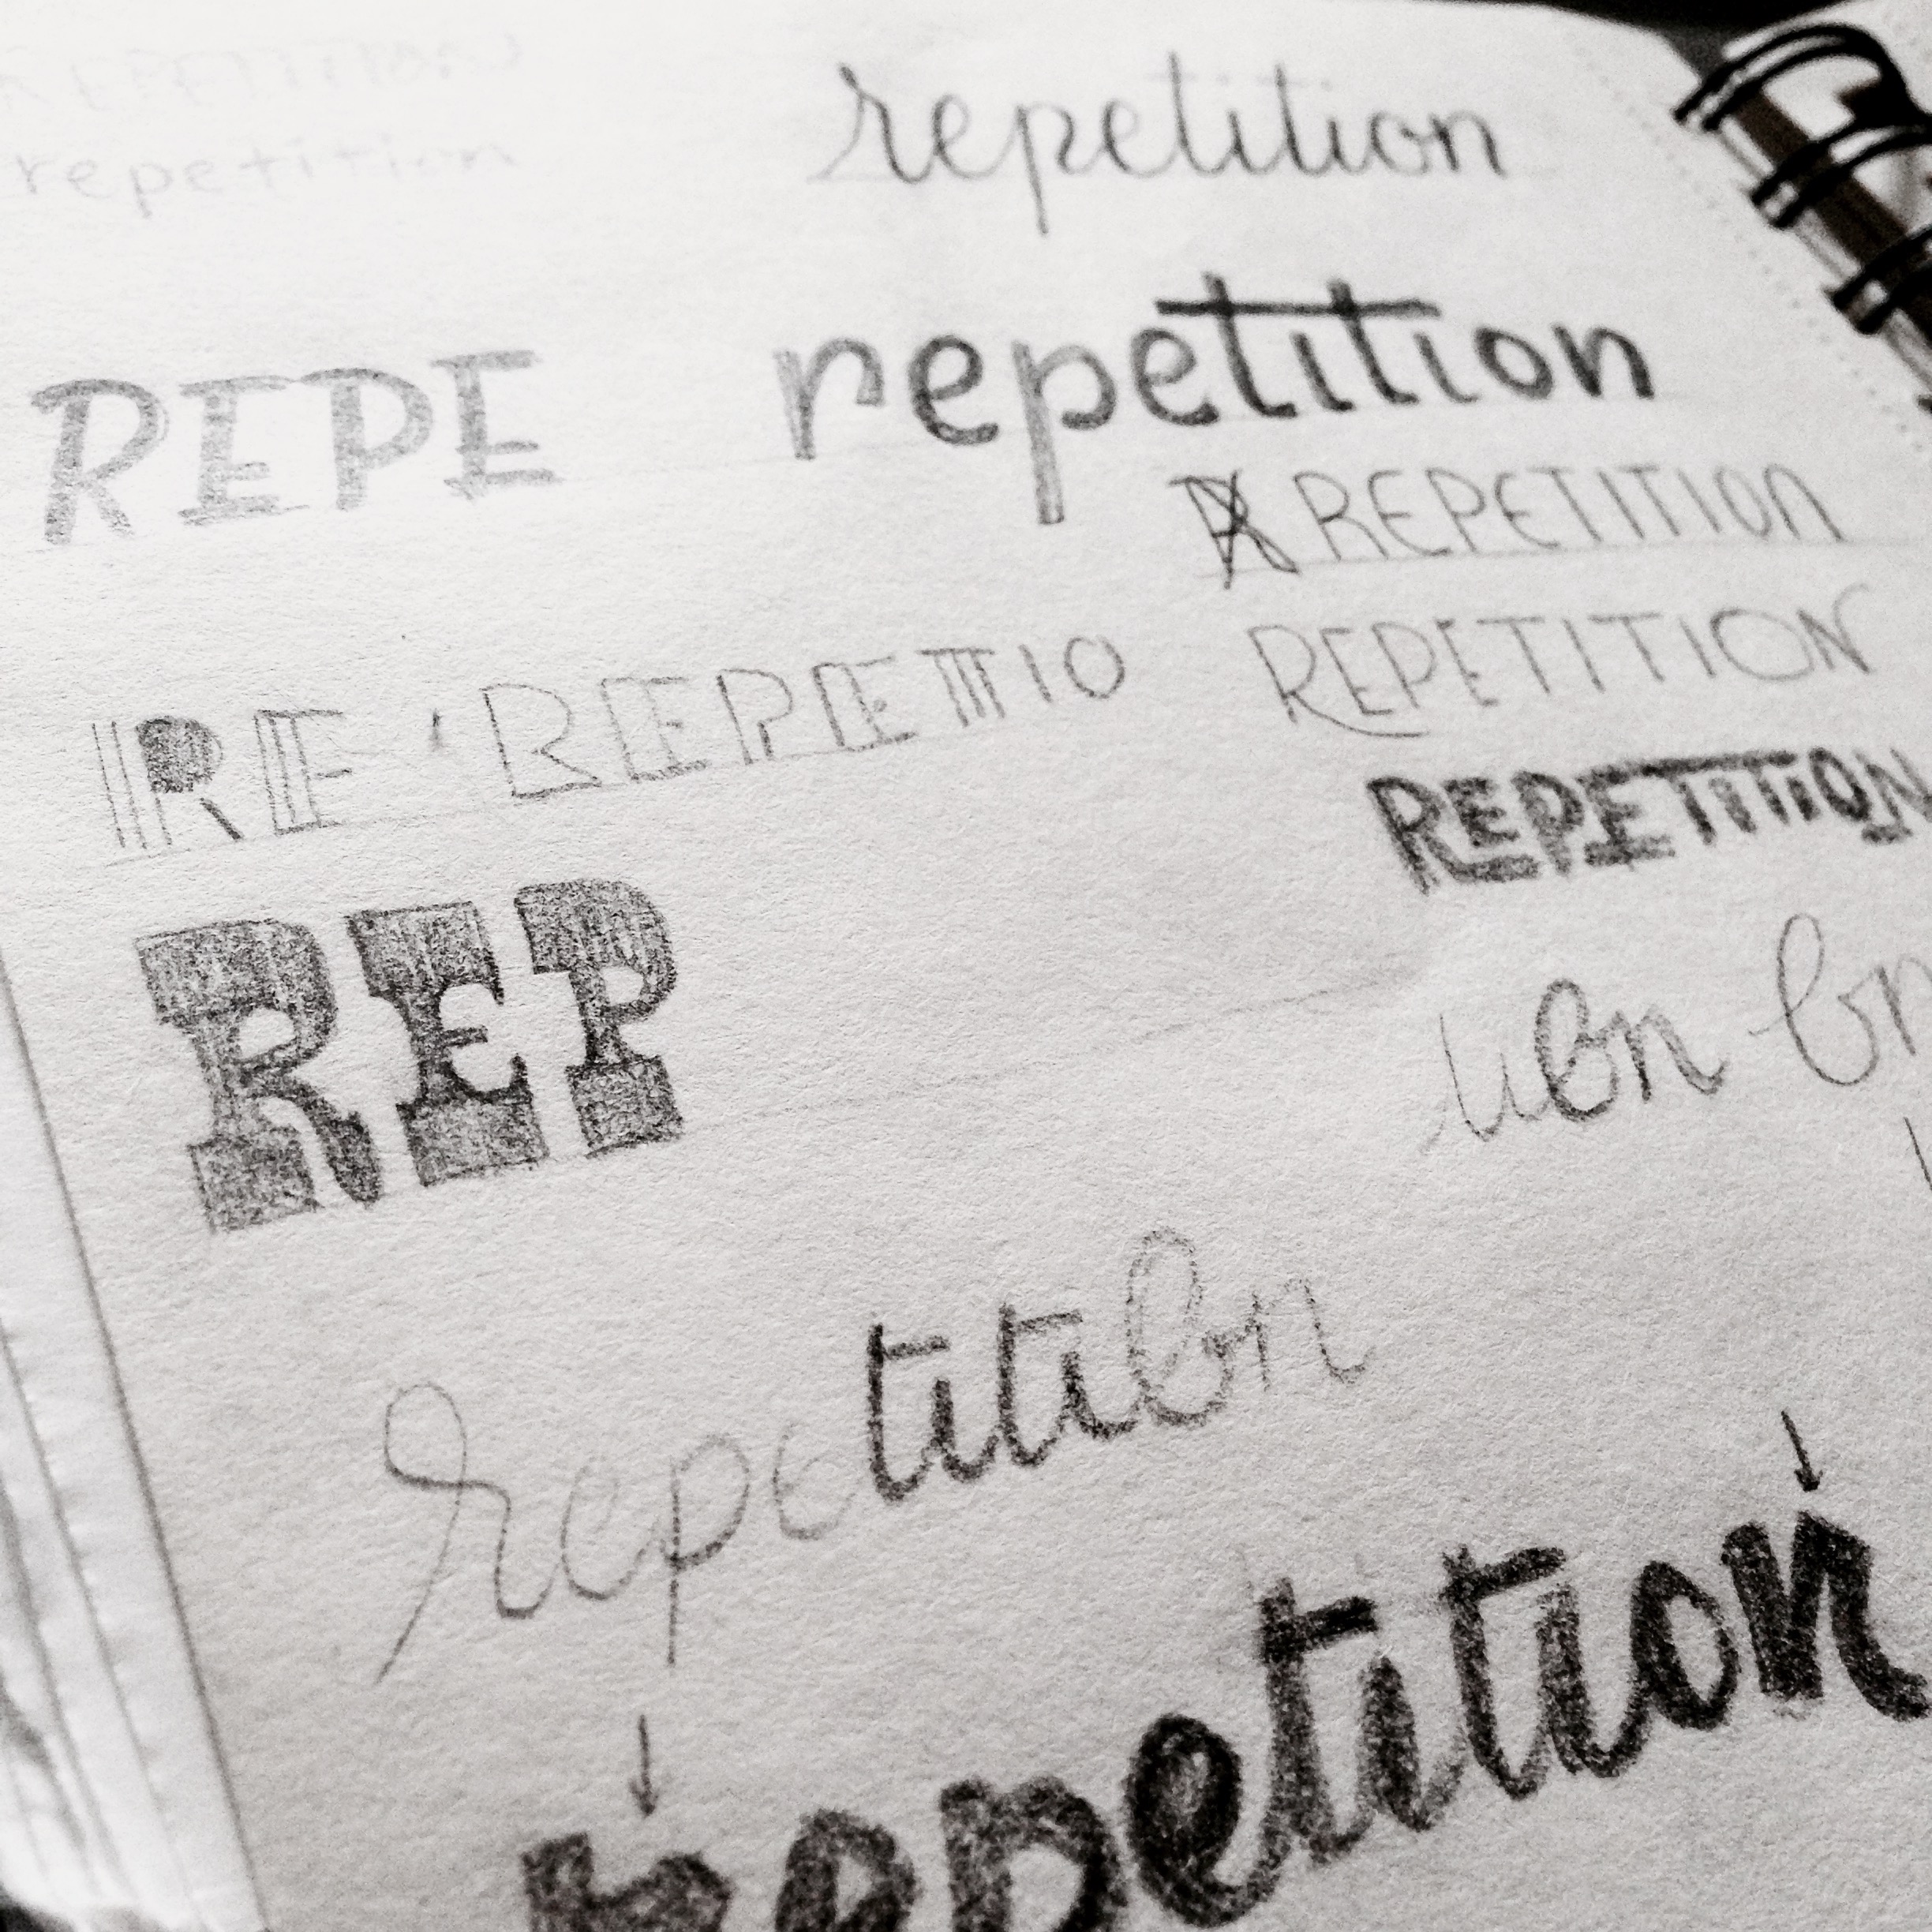 REPETITION
repetition
repetition
REPE
repetition
R REPETITION
RE REPETTIO
REPETITION
REPETITION
REP
repetition
repetition